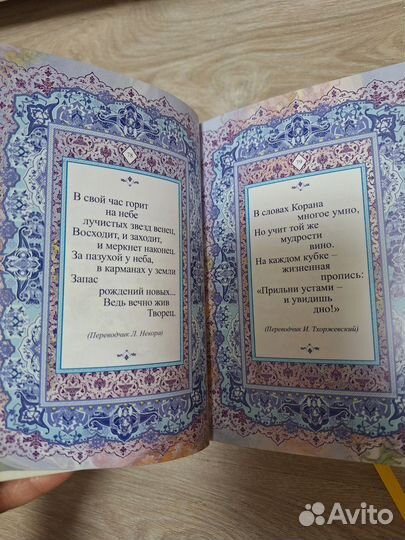 В свой час горит
на небе
лучистых звезд венец,
Восходит, и заходит,
и меркнет наконец.
За пазухой у неба,
в карманах у земли
Запас
рождений новых...
Ведь вечно жив
Творец.
(Переводчик Л. Некора)
В словах Корана
многое умно,
Но учит той же
мудрости
вино.
На каждом кубке –
жизненная
пропись:
«Прильни устами –
и увидишь
дно!»
(Переводчик И. Тхоржевский)
Avito